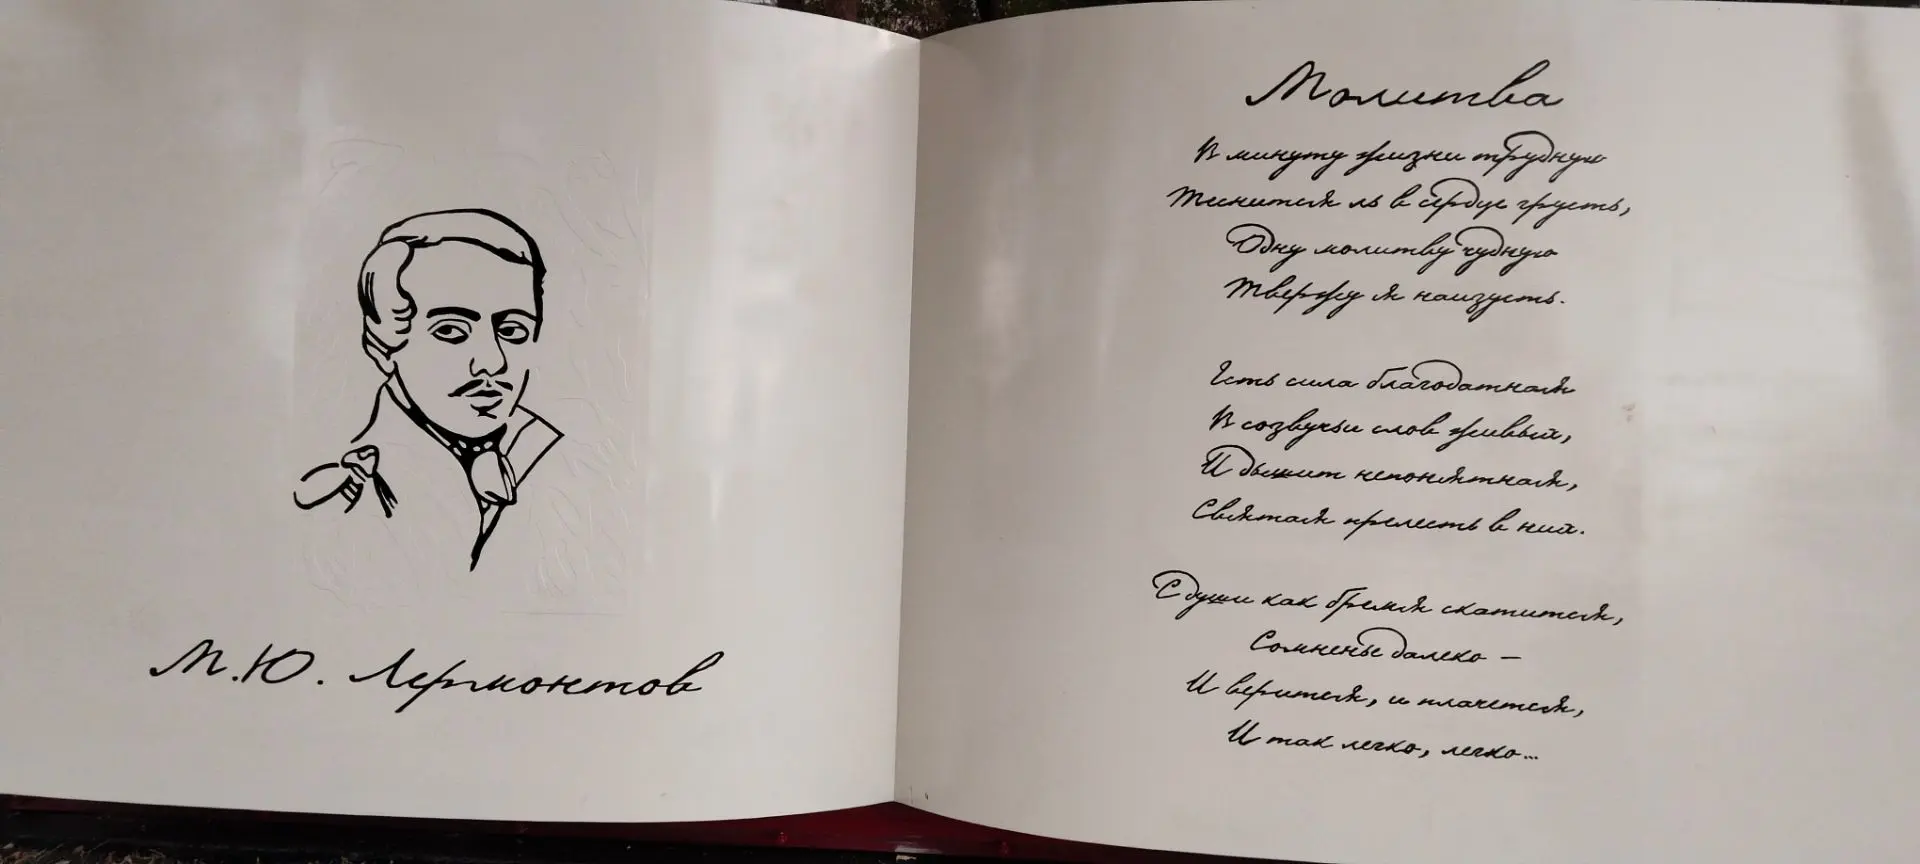 М.Ю. Лермонтов
Молитва
В минуту жизни трудную
Теснится ль в сердце грусть,
Одну молитву чудную
Твержу я наизусть.
Есть сила благодатная
В созвучьи слов живых,
И дышит непонятная,
Святая прелесть в них.
С души как бремя скатится,
Сомненье далеко —
И верится, и плачется,
И так легко, легко...